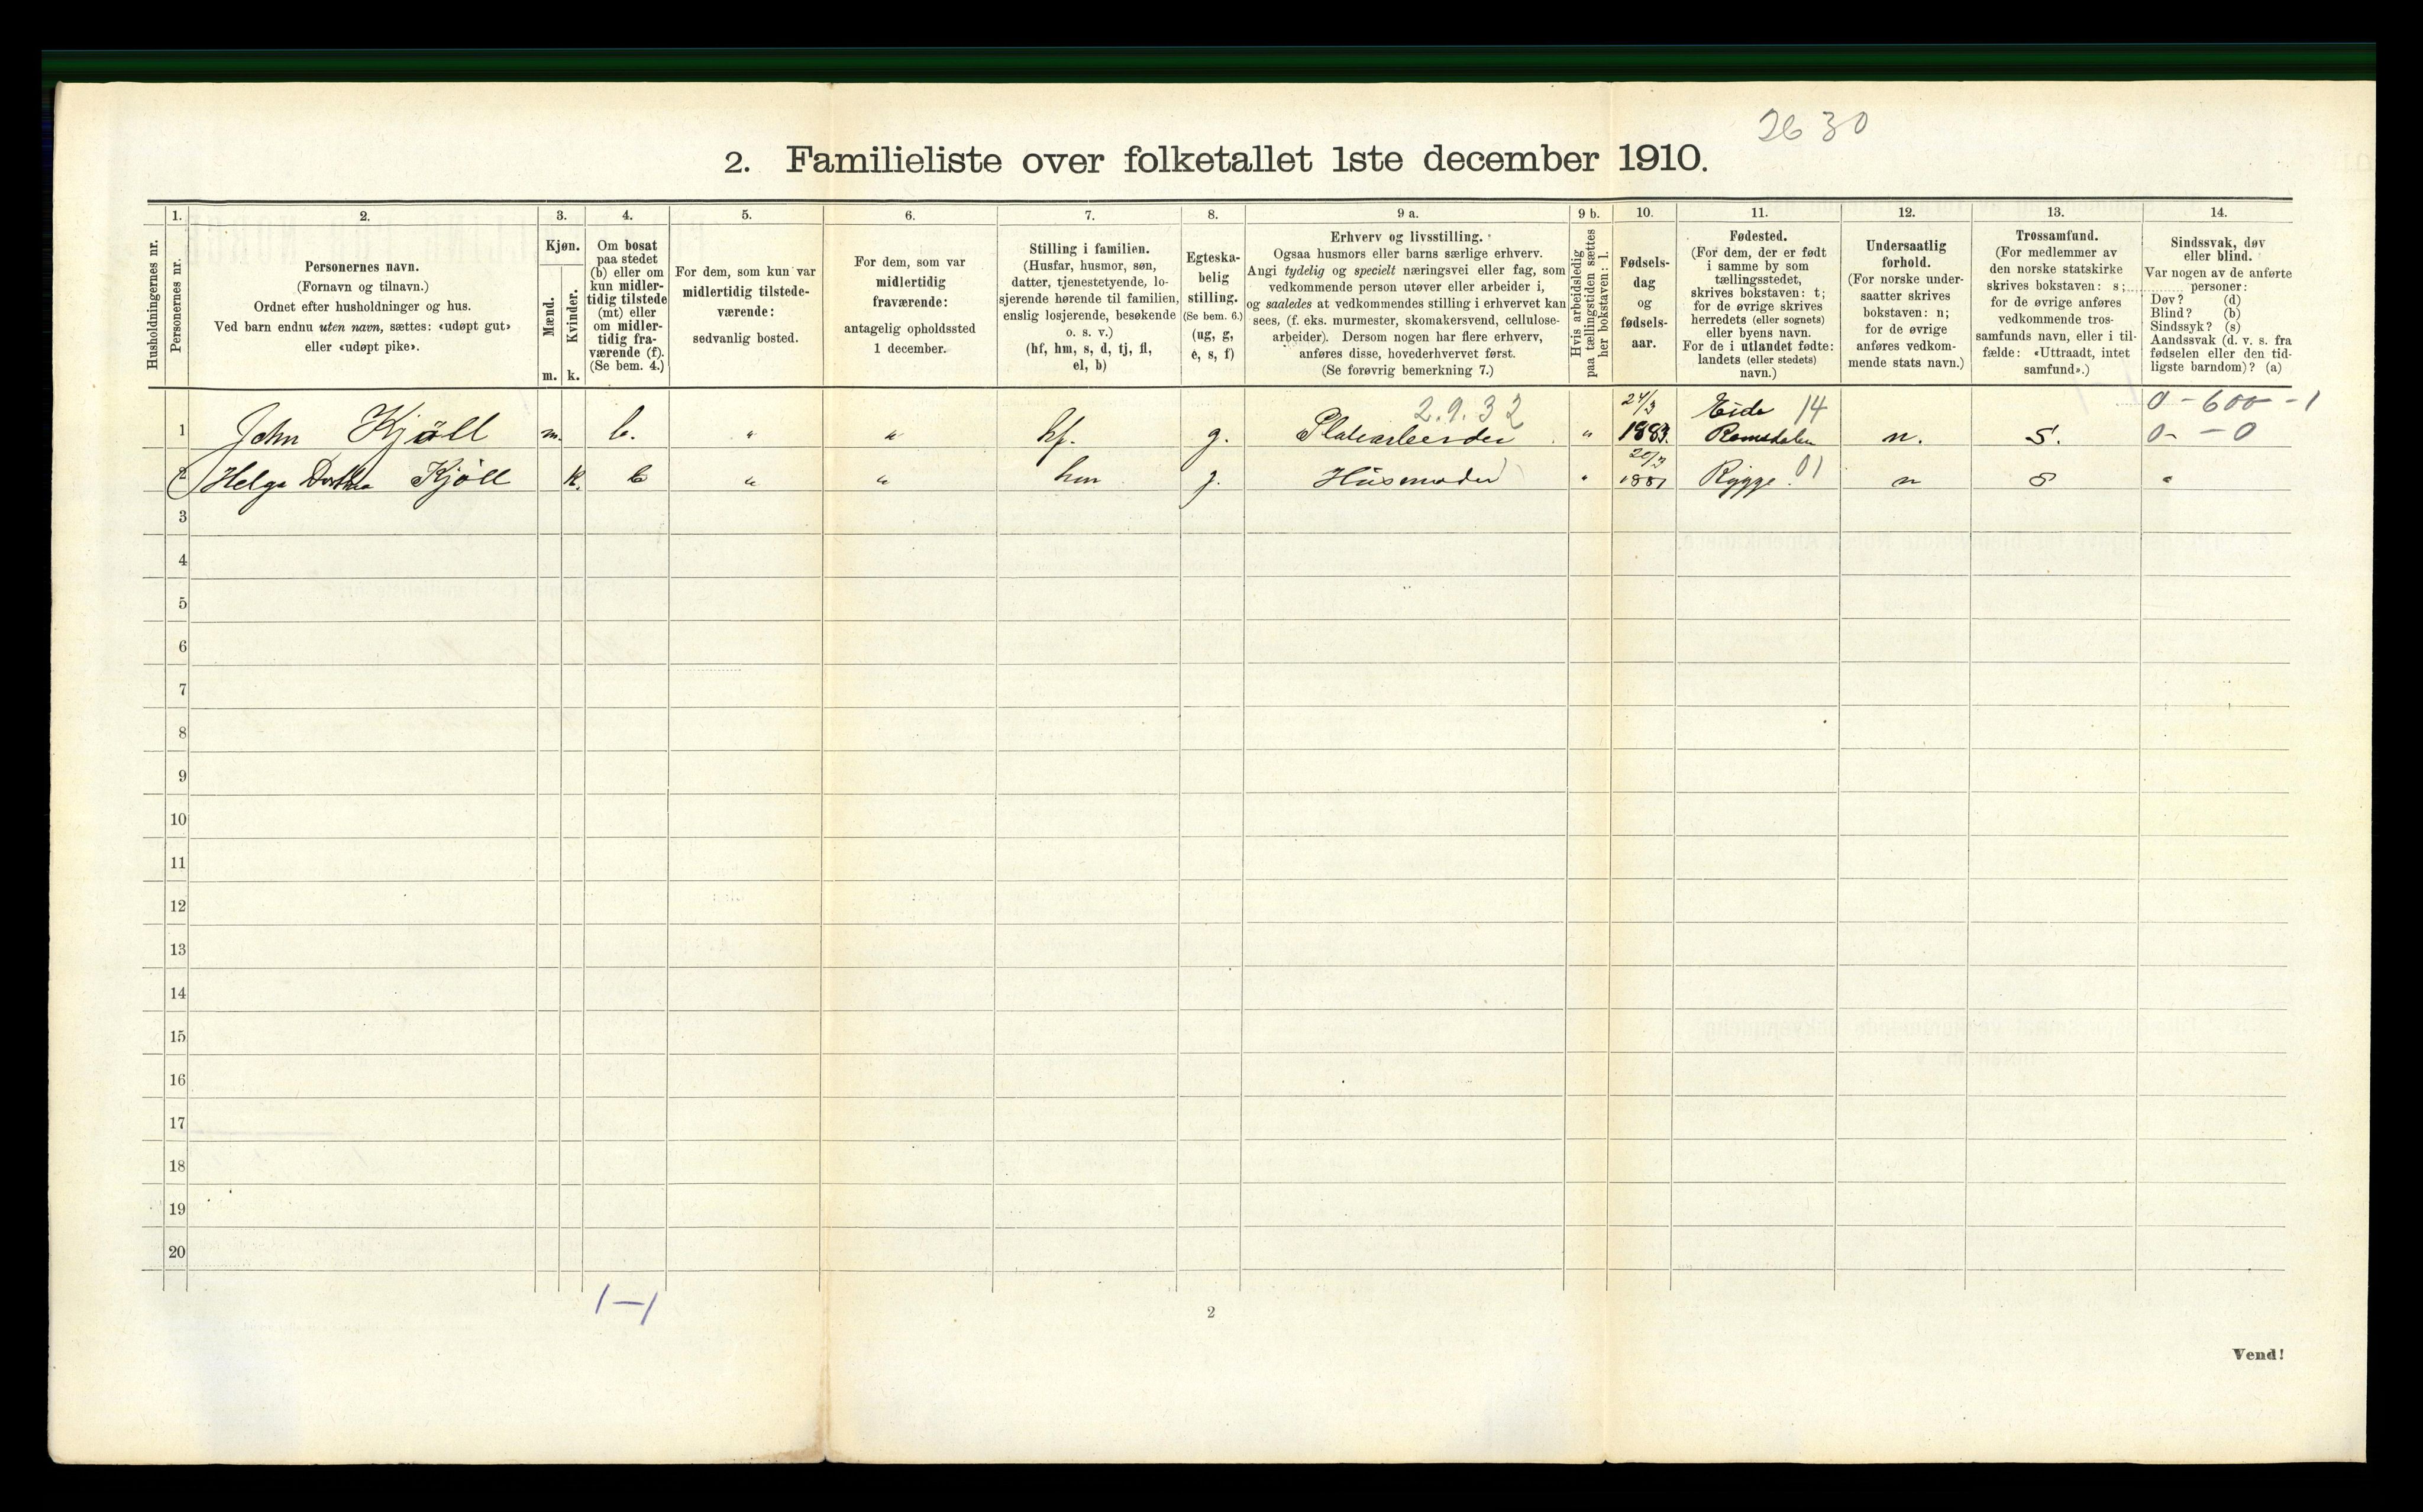 2630
2. Familieliste over folketallet 1ste december 1910.
1. 2. 3. 4. 5. 6. 7. 8. 9 a. 9 b. 10. 11. 12. 13. 14.
Husholdningernes nr.
Personernes nr.
Personernes navn.
(Fornavn og tilnavn.)
Ordnet efter husholdninger og hus.
Ved barn endnu uten navn, sættes: «udøpt gut»
eller «udøpt pike».
Kjøn.
Mænd.
Kvinder.
m. k.
Om bosat
paa stedet
(b) eller om
kun midler-
tidig tilstede
(mt) eller
om midler-
tidig fra-
værende (f).
(Se bem. 4.)
For dem, som kun var
midlertidig tilstede-
værende:
sedvanlig bosted.
For dem, som var
midlertidig
fraværende:
antagelig opholdssted
1 december.
Stilling i familien.
(Husfar, husmor, søn,
datter, tjenestetyende, lo-
sjerende hørende til familien,
enslig losjerende, besøkende
o. s. v.)
(hf, hm, s, d, tj, fl,
el, b)
Egteska-
belig
stilling.
(Se bem. 6.)
(ug, g,
e, s, f)
Erhverv og livsstilling.
Ogsaa husmors eller barns særlige erhverv.
Angi tydelig og specielt næringsvei eller fag, som
vedkommende person utøver eller arbeider i,
og saaledes at vedkommendes stilling i erhvervet kan
sees, (f. eks. murmester, skomakersvend, cellulose-
arbeider). Dersom nogen har flere erhverv,
anføres disse, hovederhvervet først.
(Se forøvrig bemerkning 7.)
Hvis arbeidsledig
paa tællingstiden sættes
her bokstaven: l.
Fødsels-
dag
og
fødsels-
aar.
Fødested.
(For dem, der er født
i samme by som
tællingsstedet,
skrives bokstaven: t;
for de øvrige skrives
herredets (eller sognets)
eller byens navn.
For de i utlandet fødte:
landets (eller stedets)
navn.)
Undersaatlig
forhold.
(For norske under-
saatter skrives
bokstaven: n;
for de øvrige
anføres vedkom-
mende stats navn.)
Trossamfund.
(For medlemmer av
den norske statskirke
skrives bokstaven: s;
for de øvrige anføres
vedkommende tros-
samfunds navn, eller i til-
fælde: «Uttraadt, intet
samfund».)
Sindssvak, døv
eller blind.
Var nogen av de anførte
personer:
Døv? (d)
Blind? (b)
Sindssyk? (s)
Aandssvak (d. v. s. fra
fødselen eller den tid-
ligste barndom)? (a)
2.9.32 24/3 Eide 14 0-600-1
1 John Kjøll m. b. " " hf. g. " 1883. Romsdalen n. s. 0- - 0
2 Helga Dorthea Kjøll k. b " " hm g. Husmoder " 1881 Rygge. 01 n s "
3
4
5
6
7
8
9
10
11
12
13
14
15
16
17
18
19
20
1-1
2
Vend!